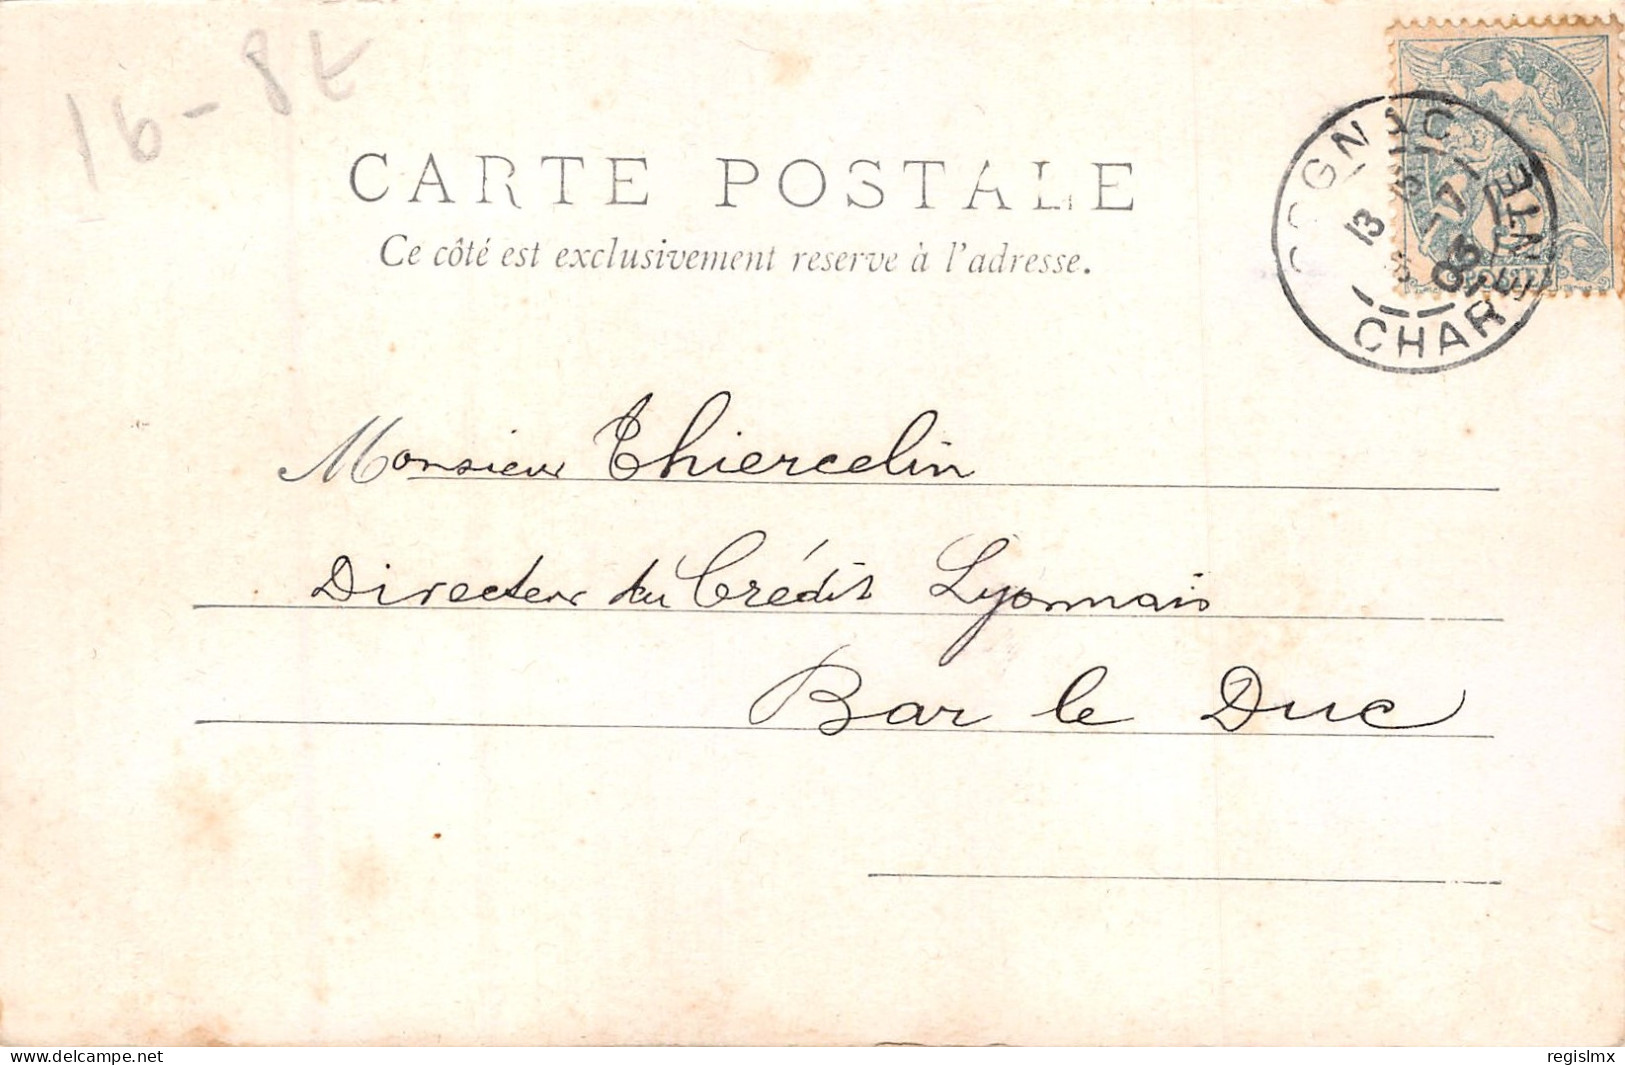 16-8
CARTE POSTALE
Ce côté est exclusivement reserve à l'adresse.
COGNAC
13
03
CHARENTE
POSTES
Monsieur Thiercelin
Directeur du Crédit Lyonnais
Bar le Duc
delcampe.net
regislmx